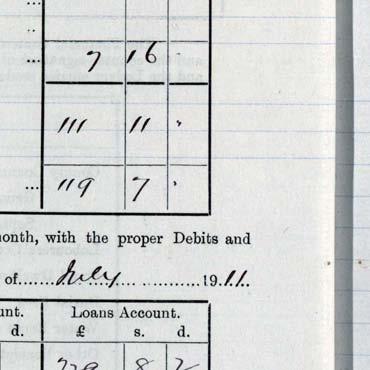 ...
..
... 7 16
111 11 "
... 119 7 "
month, with the proper Debits and
of.......July..................1911.
unt. Loans Account.
d. £ s. d.
8